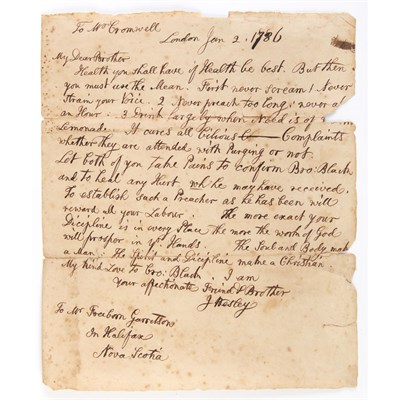 To Mr Cromwell
London Jan 2. 1786
My Dear Brother
Health you shall have if Health be best. But then
you must use the Mean. First never scream! Never
strain your Voice. 2 Never preach too long: never a
an Hour. 3 Drink large by when Need is of
Lemonade. It cures all bilious Complaints
whether they are attended with Purging or not.
Let both of you Take Pains to conform Bro: Black
and to heal any Hurt wh he may have received.
To establish such a Preacher as he has been will
reward all your Labour. The more exact your
Discipline is in every Place the more the work of God
will prosper in yr Hands. The Soul and Body make
a Man: The Spirit and Discipline make a Christian
My Kind Love to Bro: Black. I am
your affectionate Friend & Brother
J Wesley
To Mr Freeborn Garrettson
In Halifax
Nova Scotia